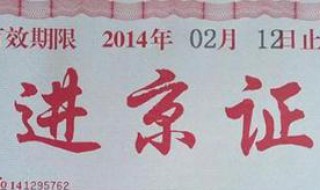 有效期限 2014年 02月 12日止
进京证
0141295762